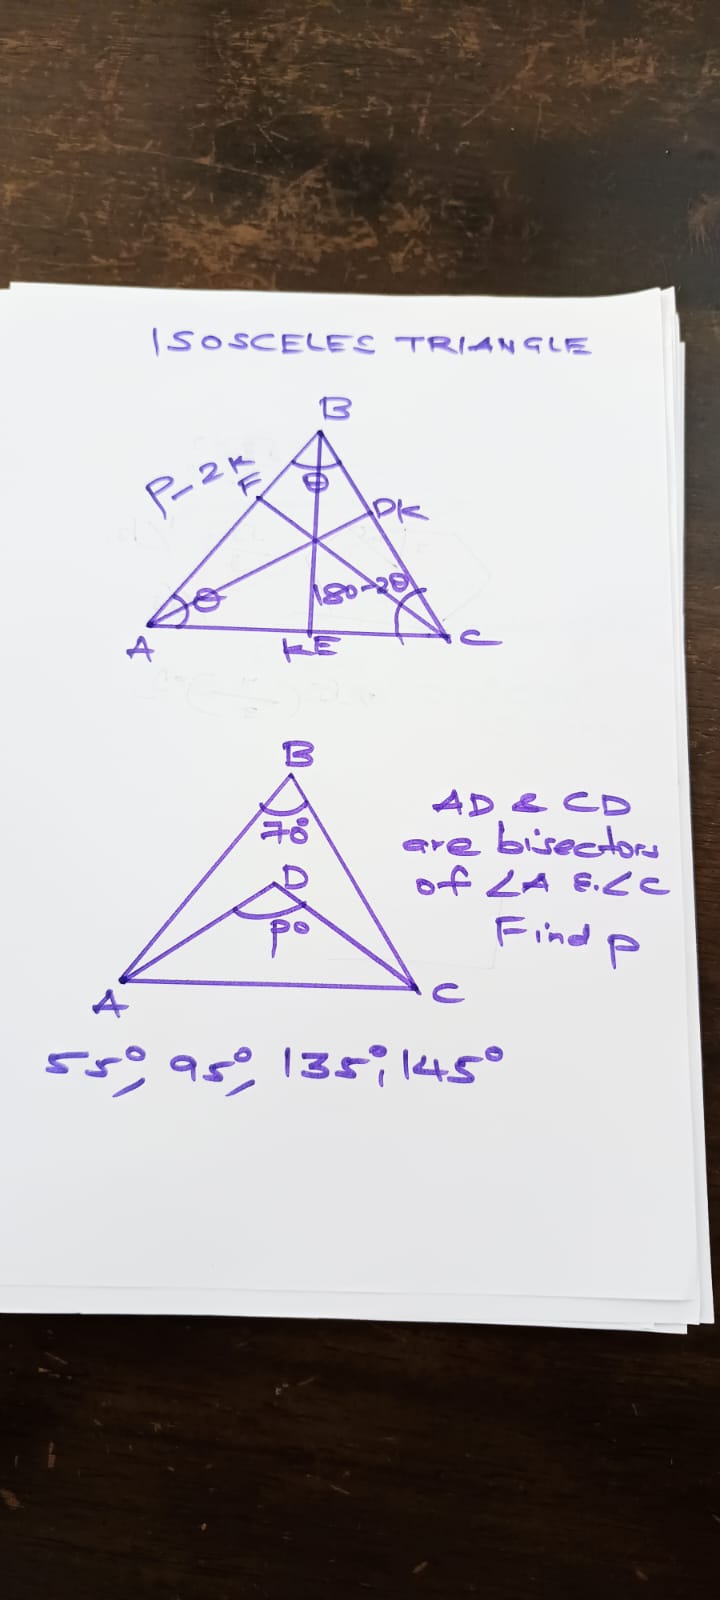 ISOSCELES TRIANGLE
B
P-2K
F
θ
DK
θ
180-2θ
A
KE
C
B
70°
D
p°
A
C
AD & CD
are bisectors
of ∠A & ∠C
Find p
55°, 95°, 135°, 145°